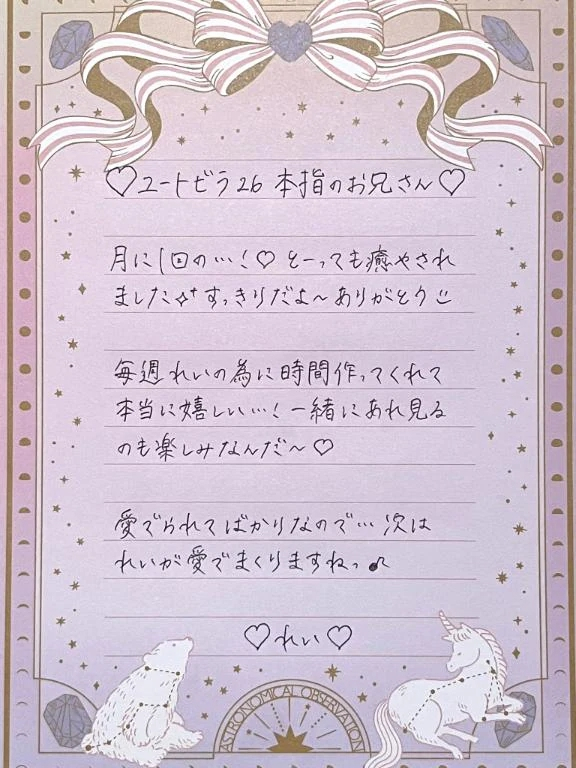 ♡ユートピラ26 本指のお兄さん♡
月に1回の…!♡ とーっても癒やされ
ました✨すっきりだよ〜ありがとう☺
毎週れいの為に時間作ってくれて
本当に嬉しい…!一緒にあれ見る
のも楽しみなんだ〜♡
愛でられてばかりなので…次は
れいが愛でまくりますねっ♪
♡れい♡
ASTRONOMICAL OBSERVATION